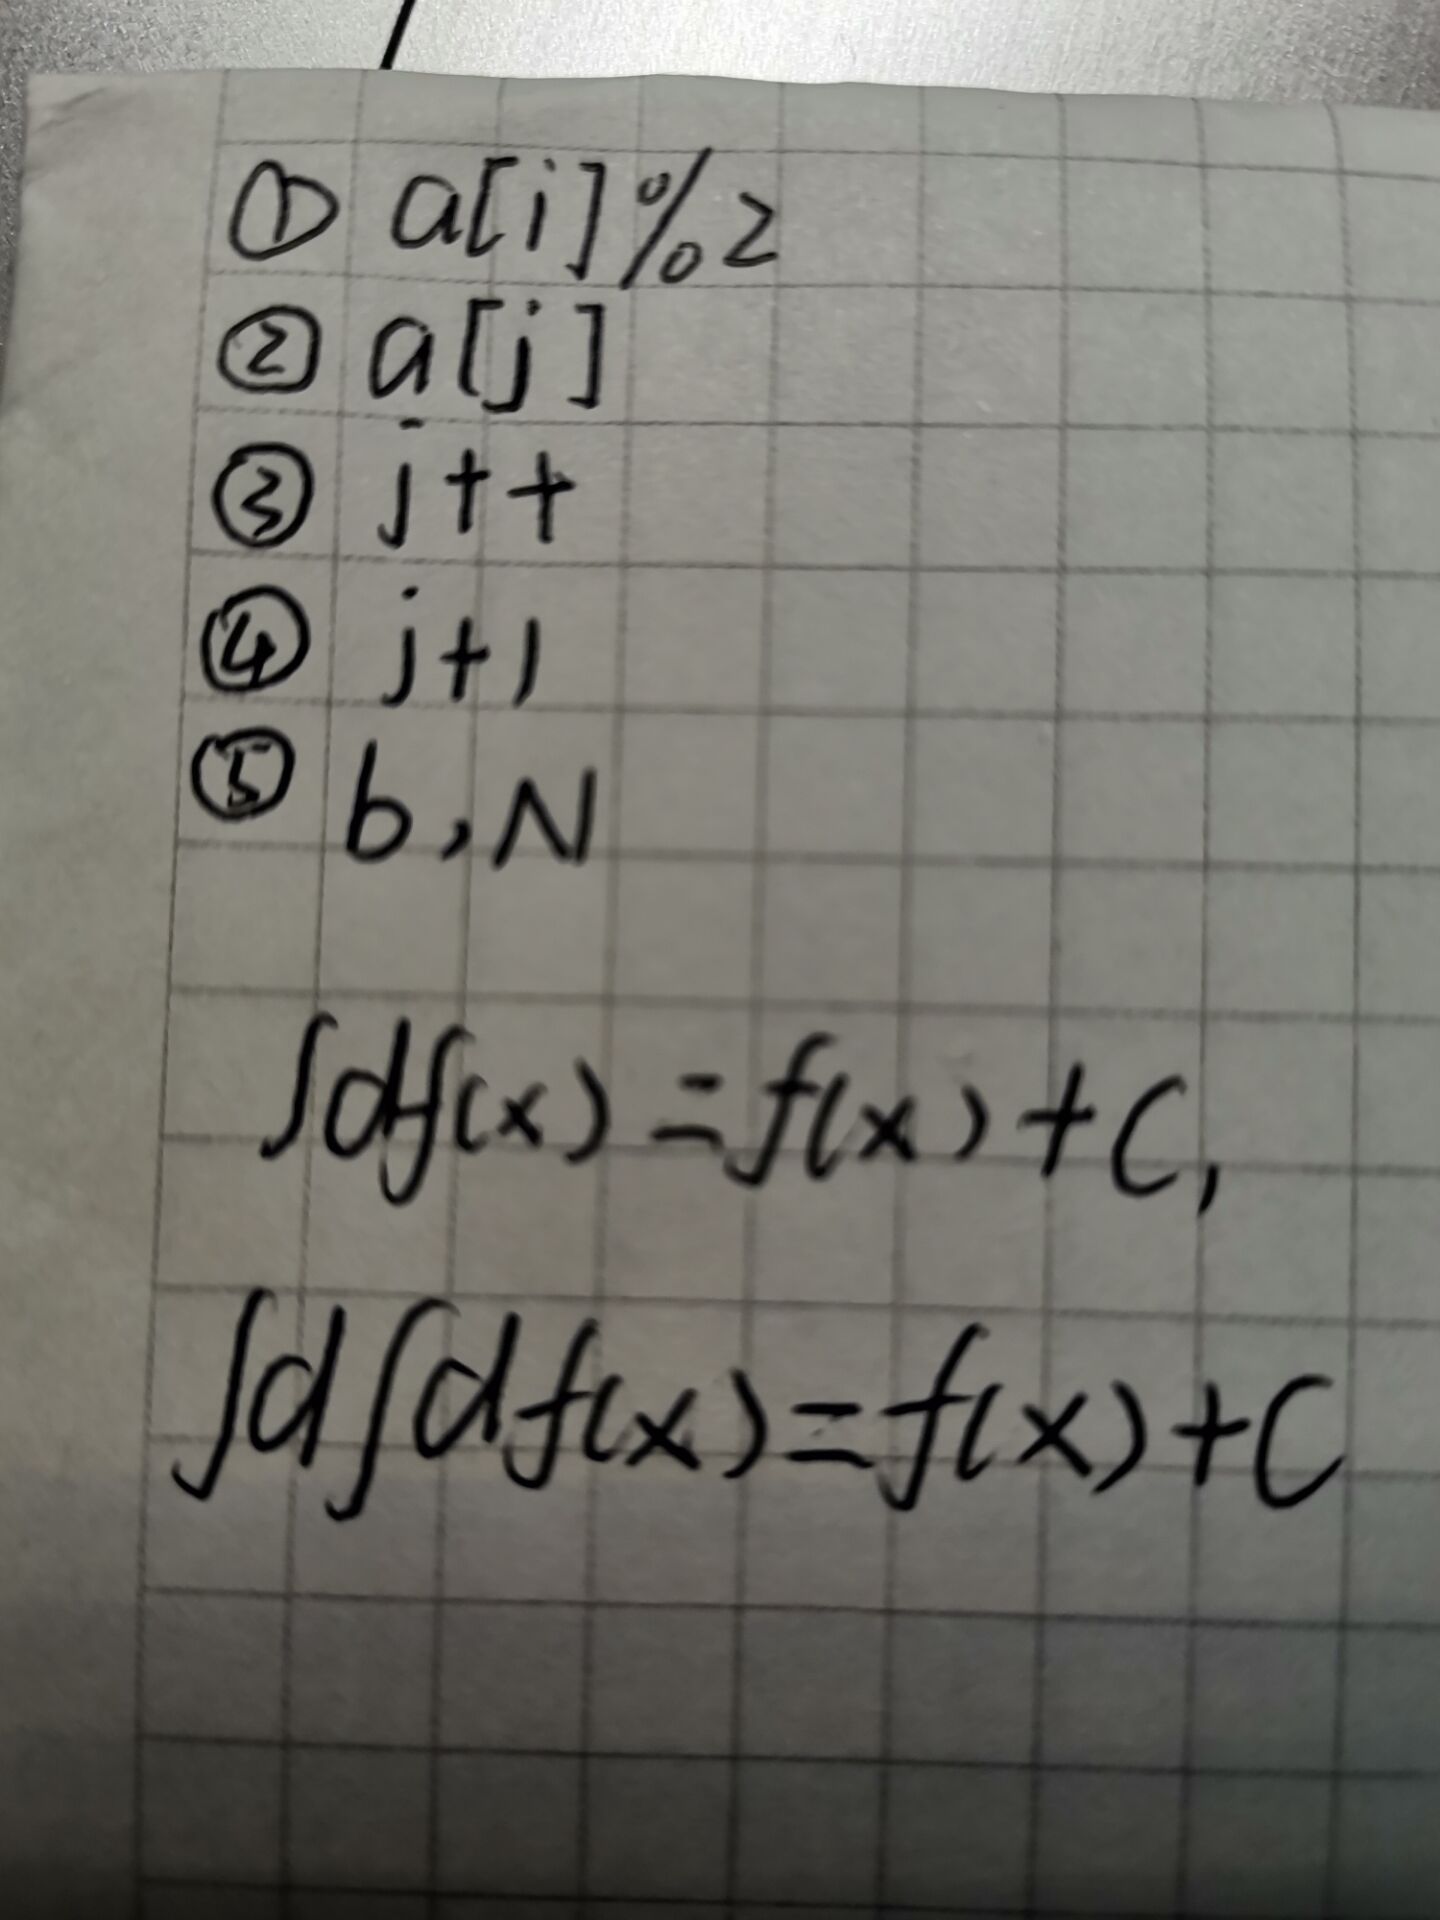 ① a[i]%2
② a[j]
③ j++
④ j+1
⑤ b,N
∫df(x)=f(x)+C,
∫d∫df(x)=f(x)+C